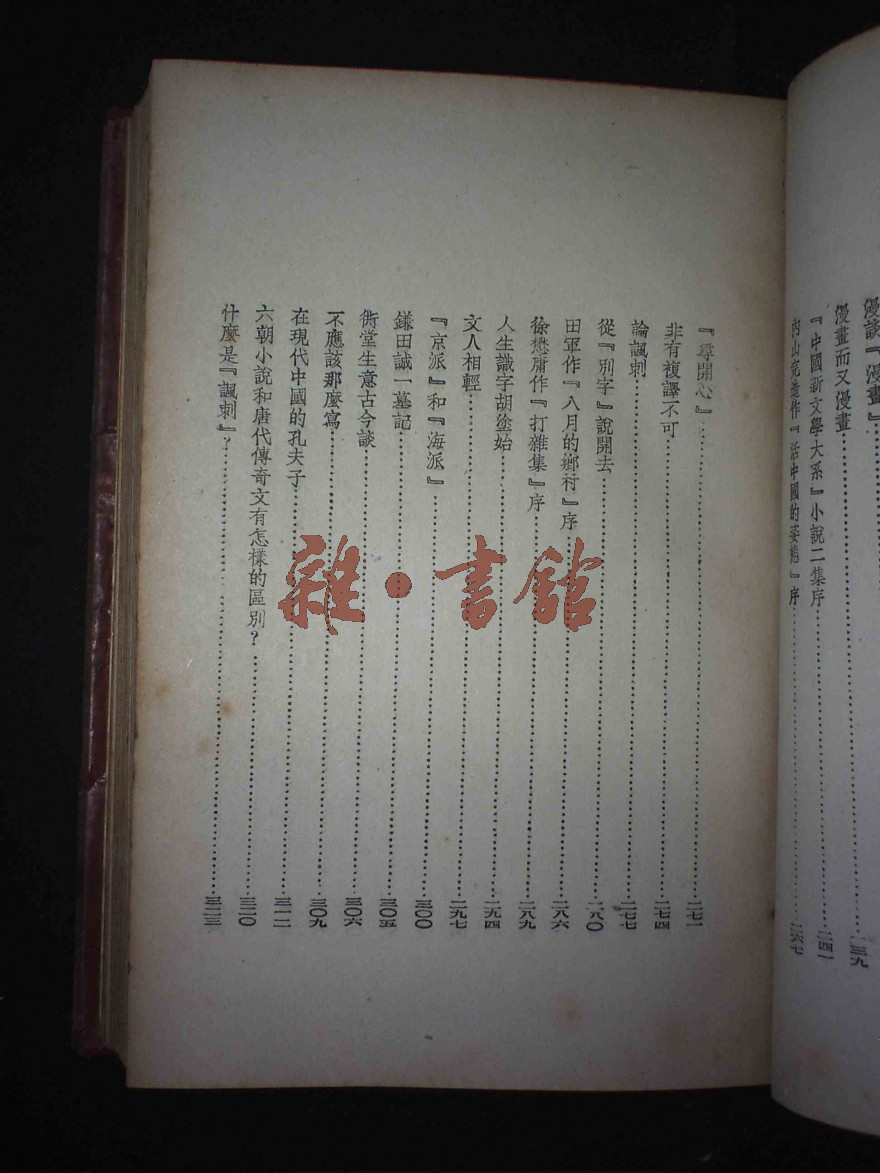 漫談『漫畫』
漫畫而又漫畫……二三九
『中國新文學大系』小說二集序……二四一
內山完造作『活中國的姿態』序……二六七
『尋開心』……二七一
非有複譯不可……二七四
論諷刺……二七七
從『別字』說開去……二八〇
田軍作『八月的鄉村』序……二八六
徐懋庸作『打雜集』序……二八九
人生識字胡塗始……二九四
文人相輕……二九七
『京派』和『海派』……三〇〇
鎌田誠一墓記……三〇五
衖堂生意古今談……三〇六
不應該那麼寫……三〇九
在現代中國的孔夫子……三一二
六朝小說和唐代傳奇文有怎樣的區別？……三二〇
什麼是『諷刺』？……三二三
雜·書館